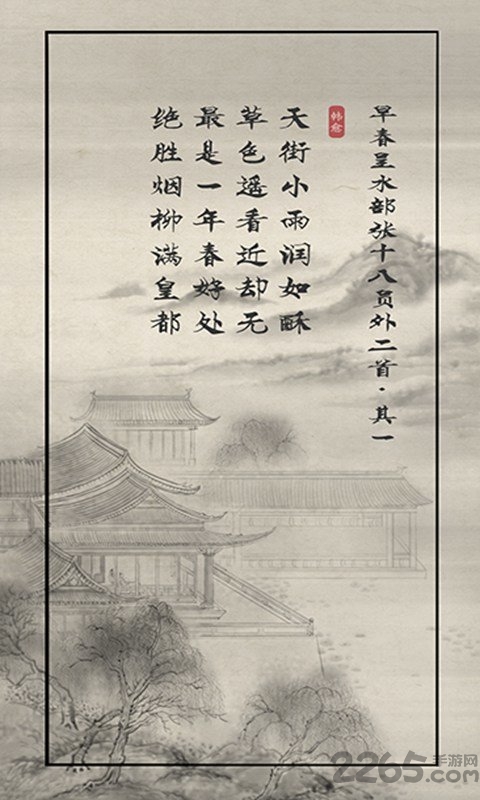 早春呈水部张十八员外二首·其一
韩愈
天街小雨润如酥
草色遥看近却无
最是一年春好处
绝胜烟柳满皇都
2265手游网
.com